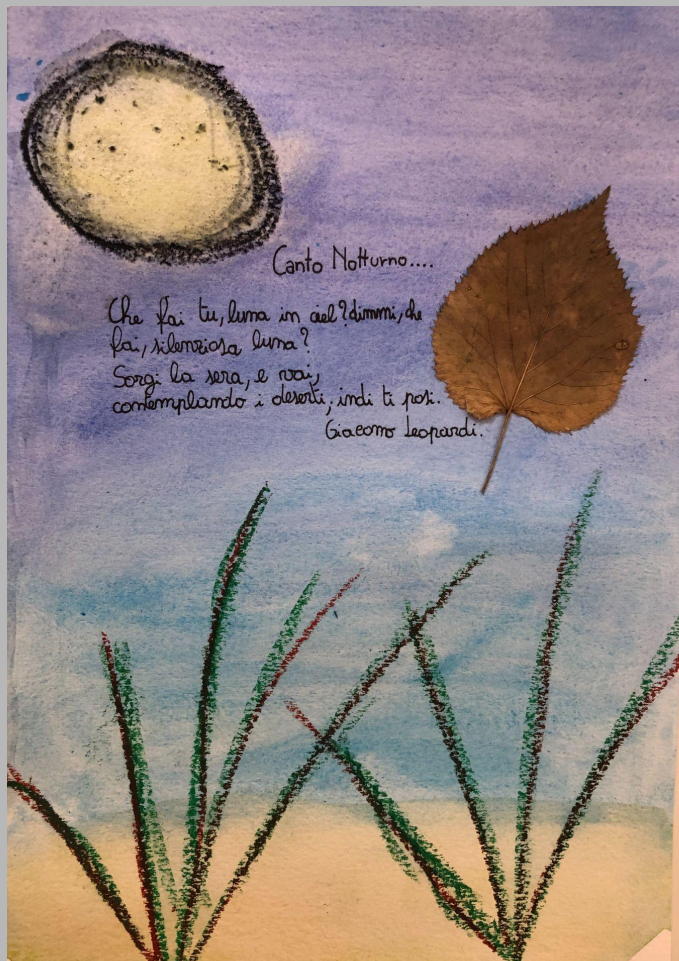 Canto Notturno....
Che fai tu, luna in ciel? dimmi, che
fai, silenziosa luna?
Sorgi la sera, e vai,
contemplando i deserti, indi ti posi.
Giacomo Leopardi.